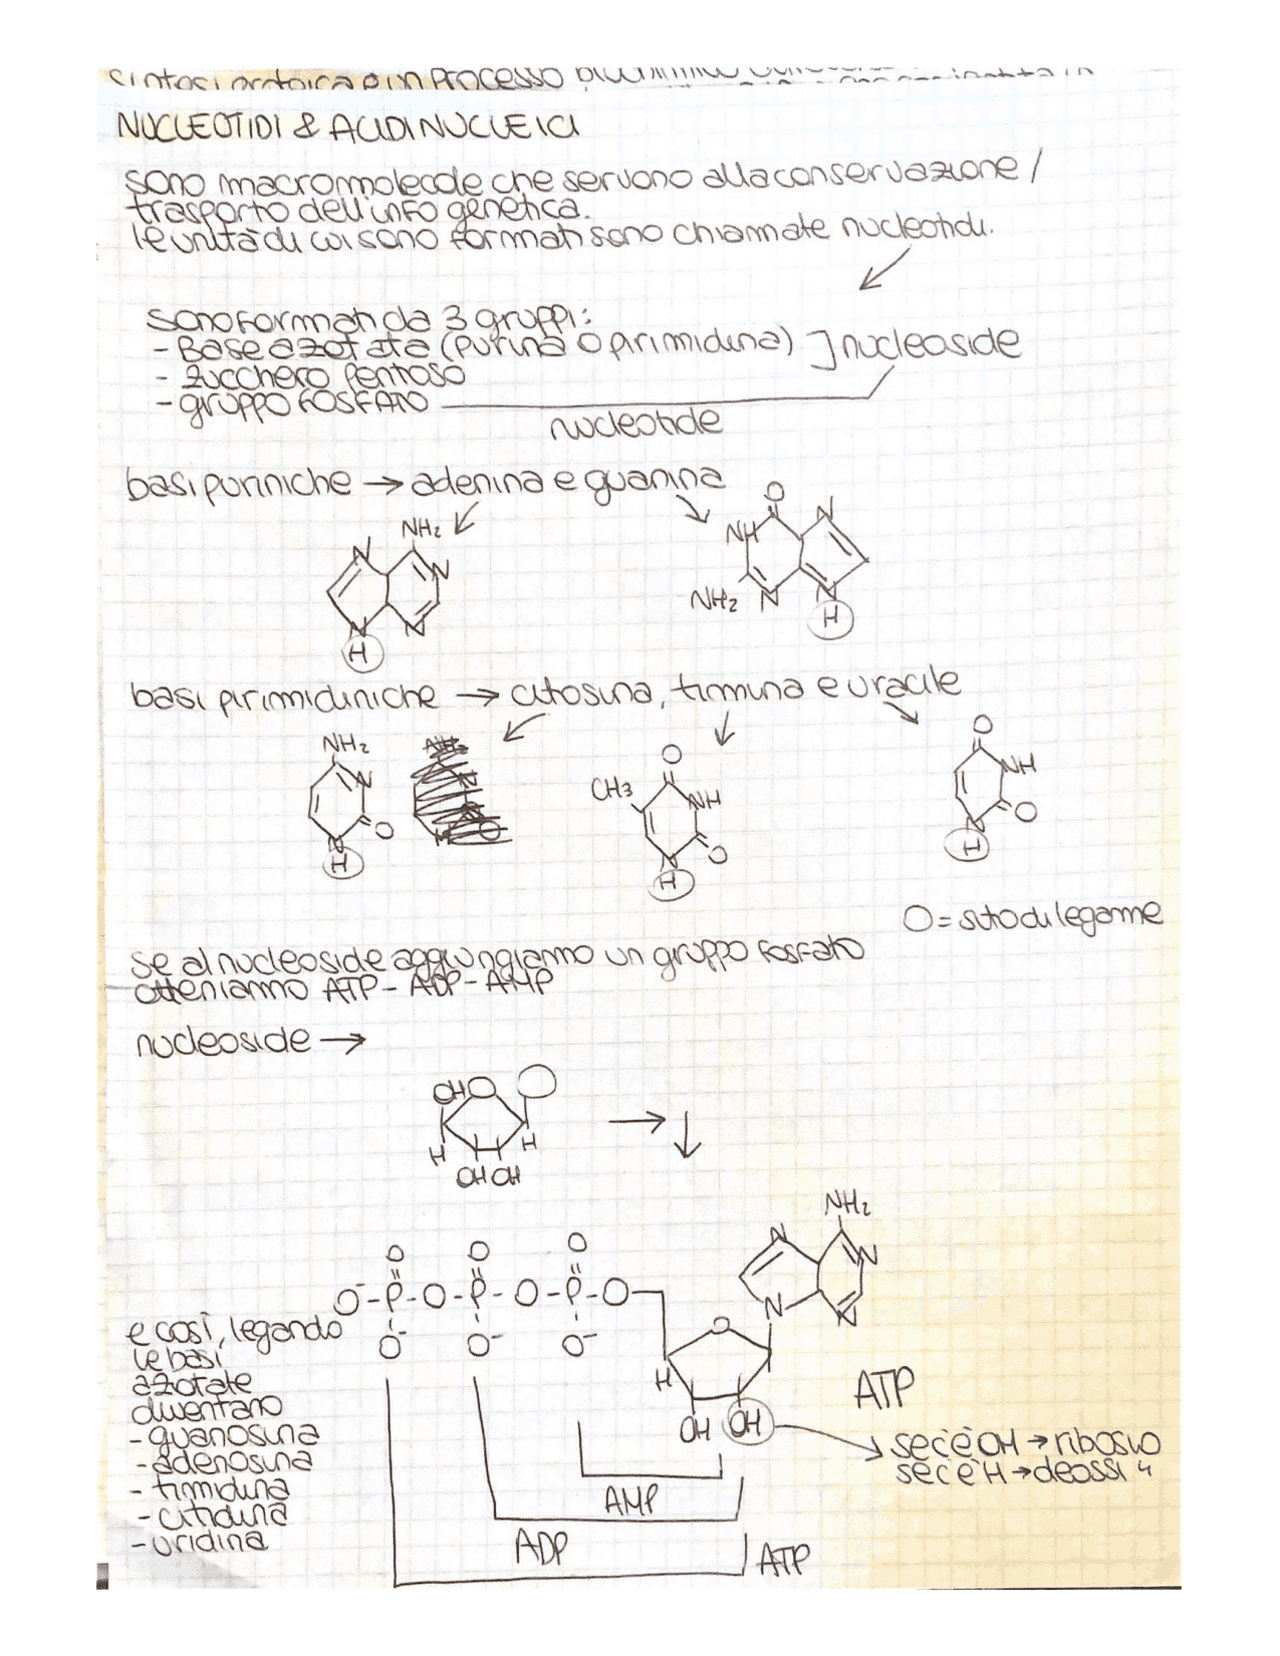 sintesi proteica è un processo biochimico
NUCLEOTIDI & ACIDI NUCLEICI
sono macromolecole che servono alla conservazione /
trasporto dell'info genetica.
le unità di cui sono formati sono chiamate nucleotidi.
sono formati da 3 gruppi:
- Base azotata (purina o pirimidina) ] nucleoside
- zucchero pentoso
- gruppo fosfato
nucleotide
basi puriniche → adenina e guanina
NH₂ N N N N H
O NH N NH₂ N N H
basi pirimidiniche → citosina, timina e uracile
NH₂ N O N H
O CH₃ NH O N H
O NH O N H
O = sito di legame
se al nucleoside aggiungiamo un gruppo fosfato
otteniamo ATP - ADP - AMP
nucleoside →
OH O
H H
OH OH
NH₂
N N
N N
O O O
O⁻-P-O-P-O-P-O
O⁻ O⁻ O⁻
O
H
OH OH
ATP
se c'è OH → ribosio
se c'è H → deossi "
e così, legando
le basi
azotate
diventano
- guanosina
- adenosina
- timidina
- citidina
- uridina
AMP
ADP
ATP